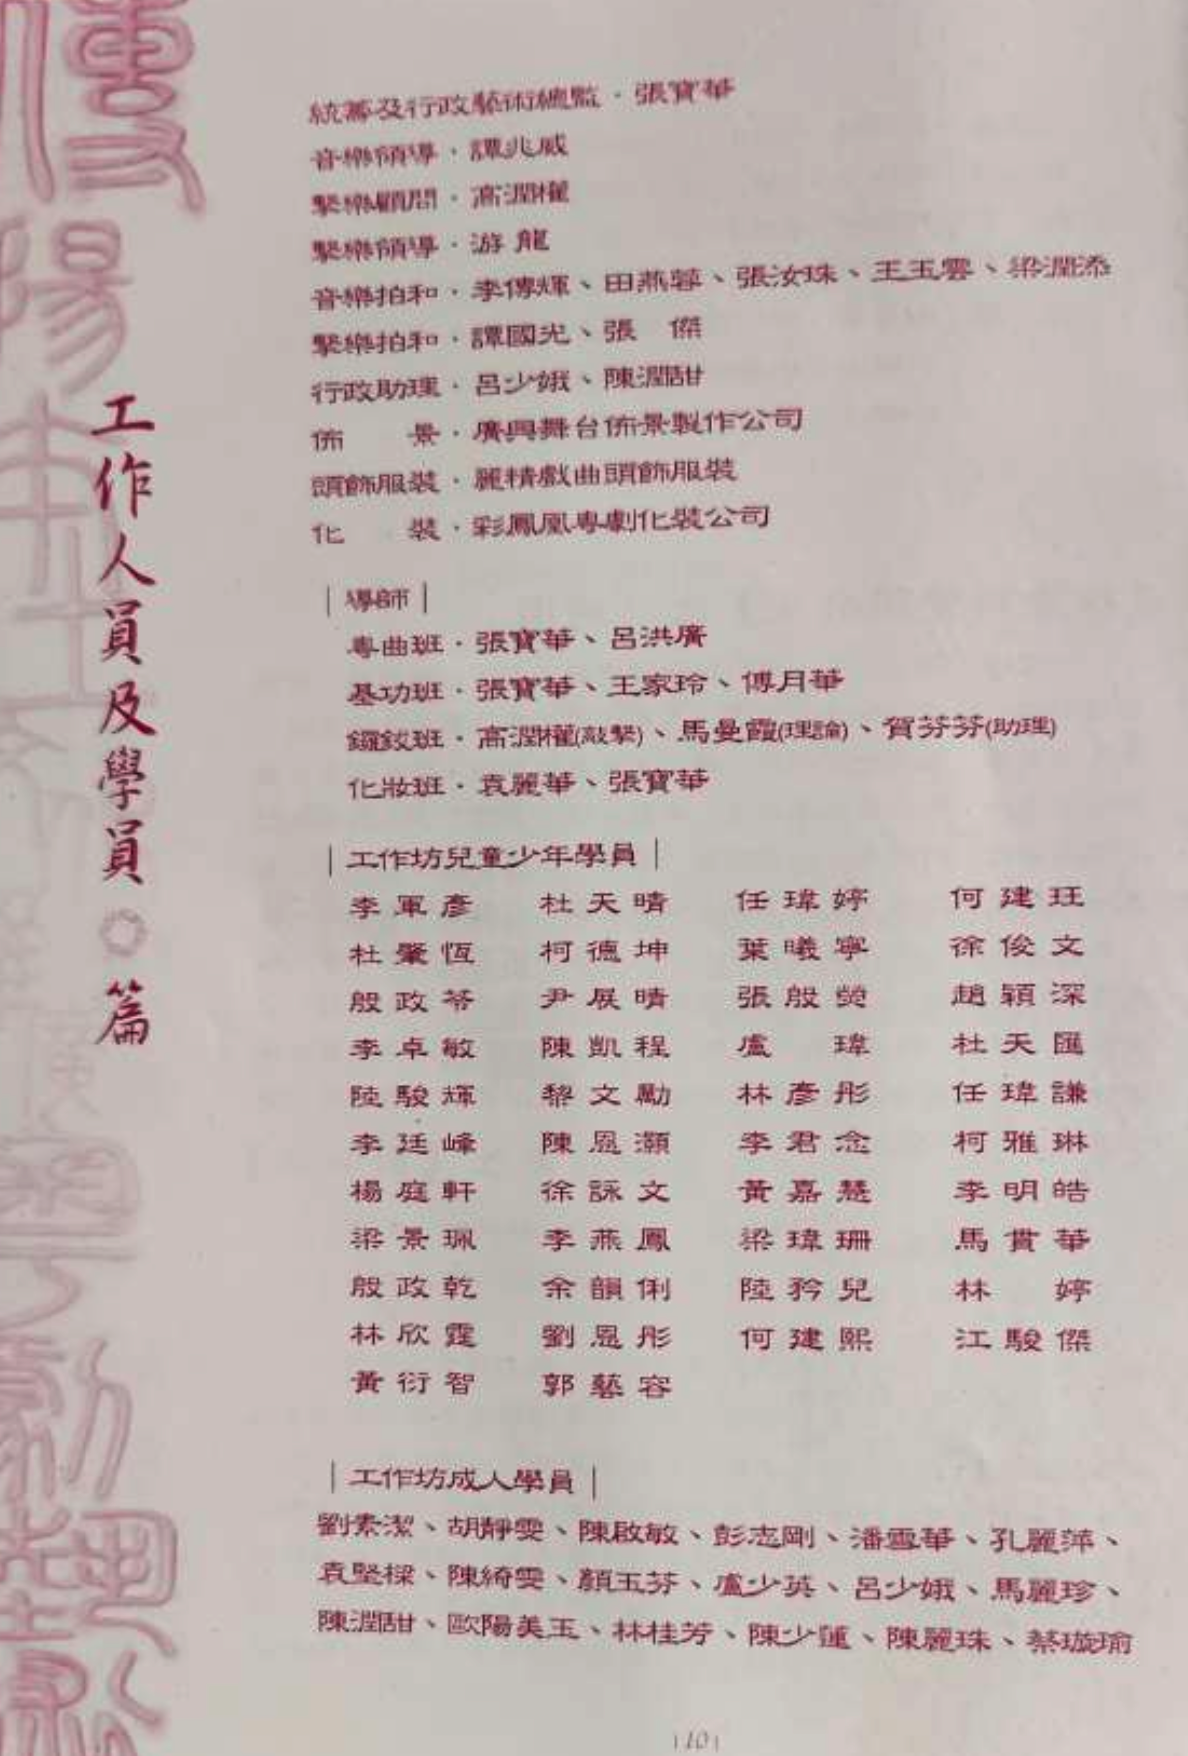 工作人員及學員。篇
統籌及行政藝術總監·張寶華
音樂領導·譚兆威
擊樂顧問·高潤權
擊樂領導·游龍
音樂拍和·李傳輝、田燕蓉、張汝珠、王玉雲、梁潤添
擊樂拍和·譚國光、張　傑
行政助理·呂少娥、陳潤甜
佈　　景·廣興舞台佈景製作公司
頭飾服裝·麗精戲曲頭飾服裝
化　　裝·彩鳳凰粵劇化裝公司
|導師|
粵曲班·張寶華、呂洪廣
基功班·張寶華、王家玲、傅月華
鑼鈸班·高潤權(敲擊)、馬曼霞(理論)、賀芬芬(助理)
化妝班·袁麗華、張寶華
|工作坊兒童少年學員|
李軍彥　杜天晴　任瑋婷　何建玨
杜肇恆　柯德坤　葉曦寧　徐俊文
殷政苓　尹展晴　張殷熒　趙穎深
李卓敏　陳凱程　盧　瑋　杜天匯
陸駿輝　黎文勵　林彥彤　任瑋謙
李廷峰　陳恩灝　李君念　柯雅琳
楊庭軒　徐詠文　黃嘉慧　李明皓
梁景珮　李燕鳳　梁瑋珊　馬貫華
殷政乾　余韻俐　陸矜兒　林　婷
林欣霆　劉恩彤　何建熙　江駿傑
黃衍智　郭藝容
|工作坊成人學員|
劉素潔、胡靜雯、陳啟敏、彭志剛、潘雪華、孔麗萍、
袁堅樑、陳綺雯、顏玉芬、盧少英、呂少娥、馬麗珍、
陳潤甜、歐陽美玉、林桂芳、陳少蓮、陳麗珠、蔡璇瑜
|10|